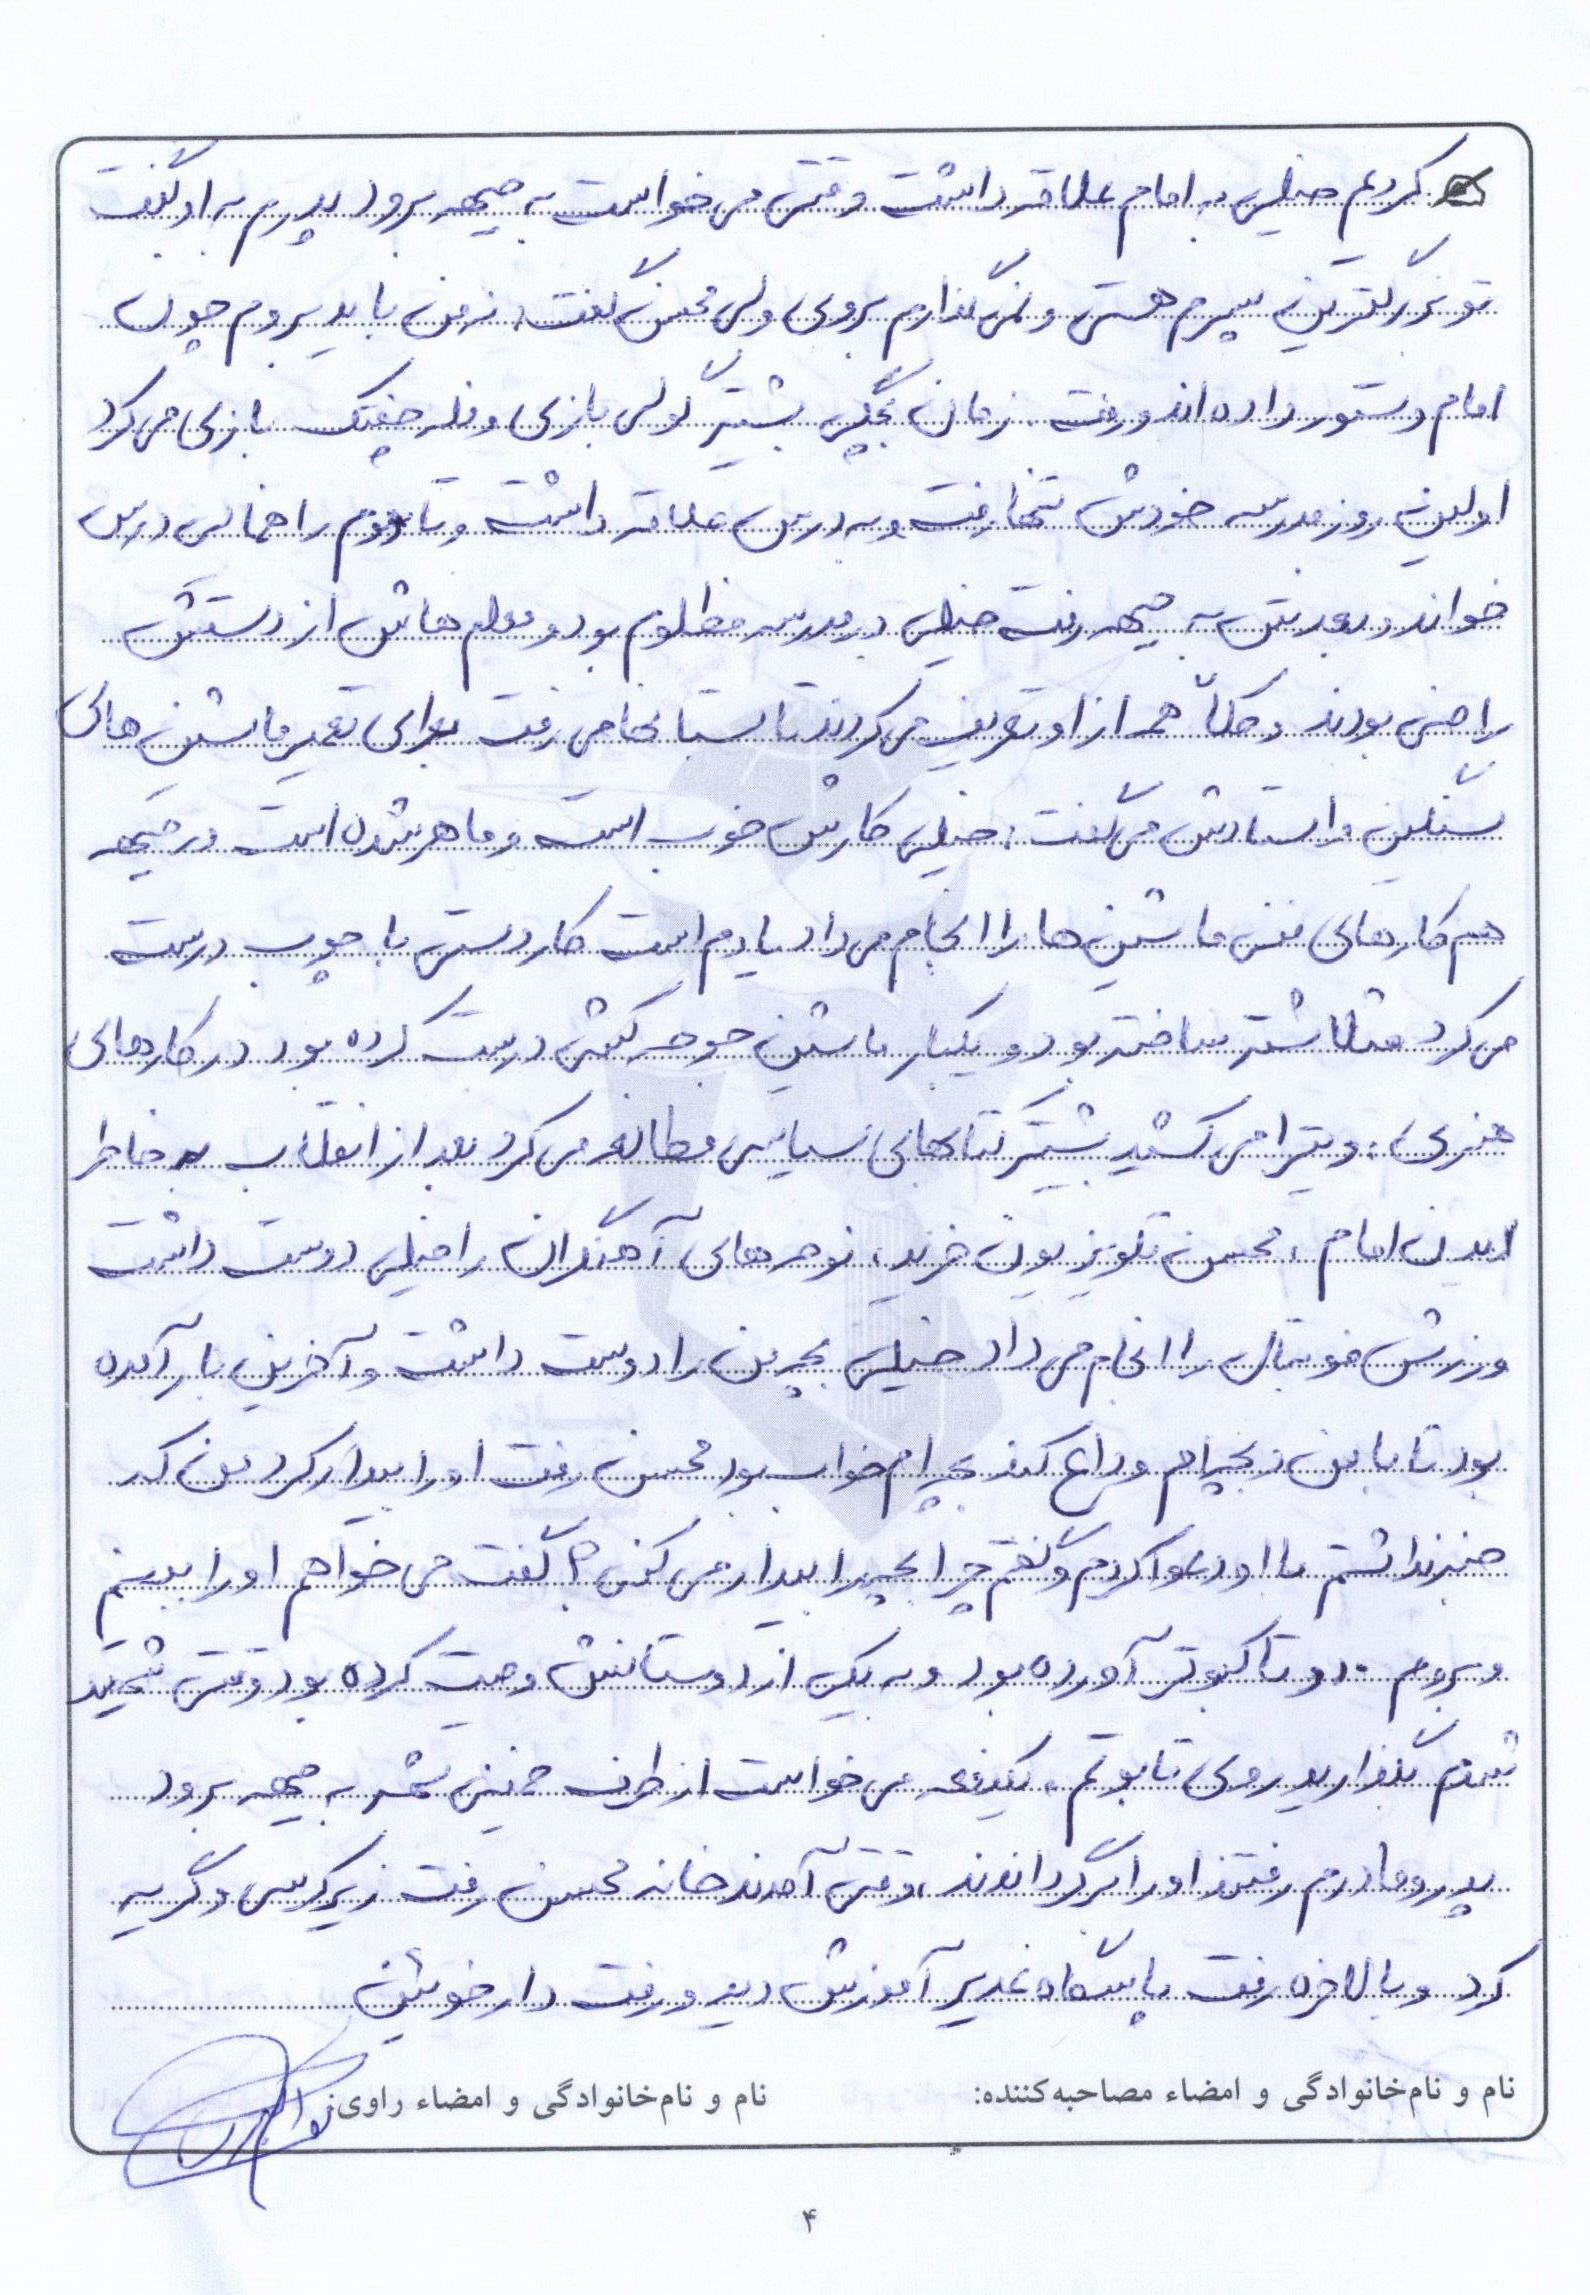 کردیم خیلی به امام علاقه داشت وقتی می خواست به جبهه برود پدرم به او گفت
تو بزرگترین پسرم هستی و نمی گذارم بروی ولی محسن گفت: نه من باید بروم چون
امام دستور داده اند و رفت. زمان بچگی بیشتر گولی بازی و فله چفتک بازی می کرد
اولین روز مدرسه خودش تنها رفت و به درس علاقه داشت و تا دوم راهنمایی درس
خواند و بعدش به جبهه رفت خیلی در مدرسه مظلوم بود و معلم هایش از دستش
راضی بودند و کلاً همه از او تعریف می کردند تابستانها می رفت برای تعمیر ماشین های
سنگین و استادش می گفت: خیلی کارش خوب است و ماهر شده است در جبهه
هم کارهای فنی ماشین ها را انجام می داد یادم است کاردستی با چوب درست
می کرد مثلا شتر ساخته بود و یکبار ماشین جوجه کشی درست کرده بود در کارهای
هنری، ویترا می کشید بیشتر کتابهای سیاسی مطالعه می کرد بعد از انقلاب به خاطر
دیدن امام، محسن تلویزیون خرید، نوحه های آهنگران را خیلی دوست داشت
ورزش فوتبال را انجام می داد خیلی بچه من را دوست داشت و آخرین بار آمده
بود تا با من و بچه ام وداع کند بچه ام خواب بود محسن رفت او را بیدار کرد من که
خبر نداشتم با او دعوا کردم و گفتم چرا بچه را بیدار می کنی؟ گفت می خواهم او را ببینم
و بروم. دو تا کبوتر آورده بود و به یکی از دوستانش وصیت کرده بود وقتی شهید
شدم بگذارید روی تابوتم. یکدفعه می خواست از طرف خمینی شهر به جبهه برود
پدر و مادرم رفتند او را برگرداندند، وقتی آمدند خانه محسن رفت زیر کرسی و گریه
کرد و بالاخره رفت پاشگاه غدیر آموزش دید و رفت دارخوئین
نام و نام‌خانوادگی و امضاء مصاحبه‌کننده: نام و نام‌خانوادگی و امضاء راوی:
۴